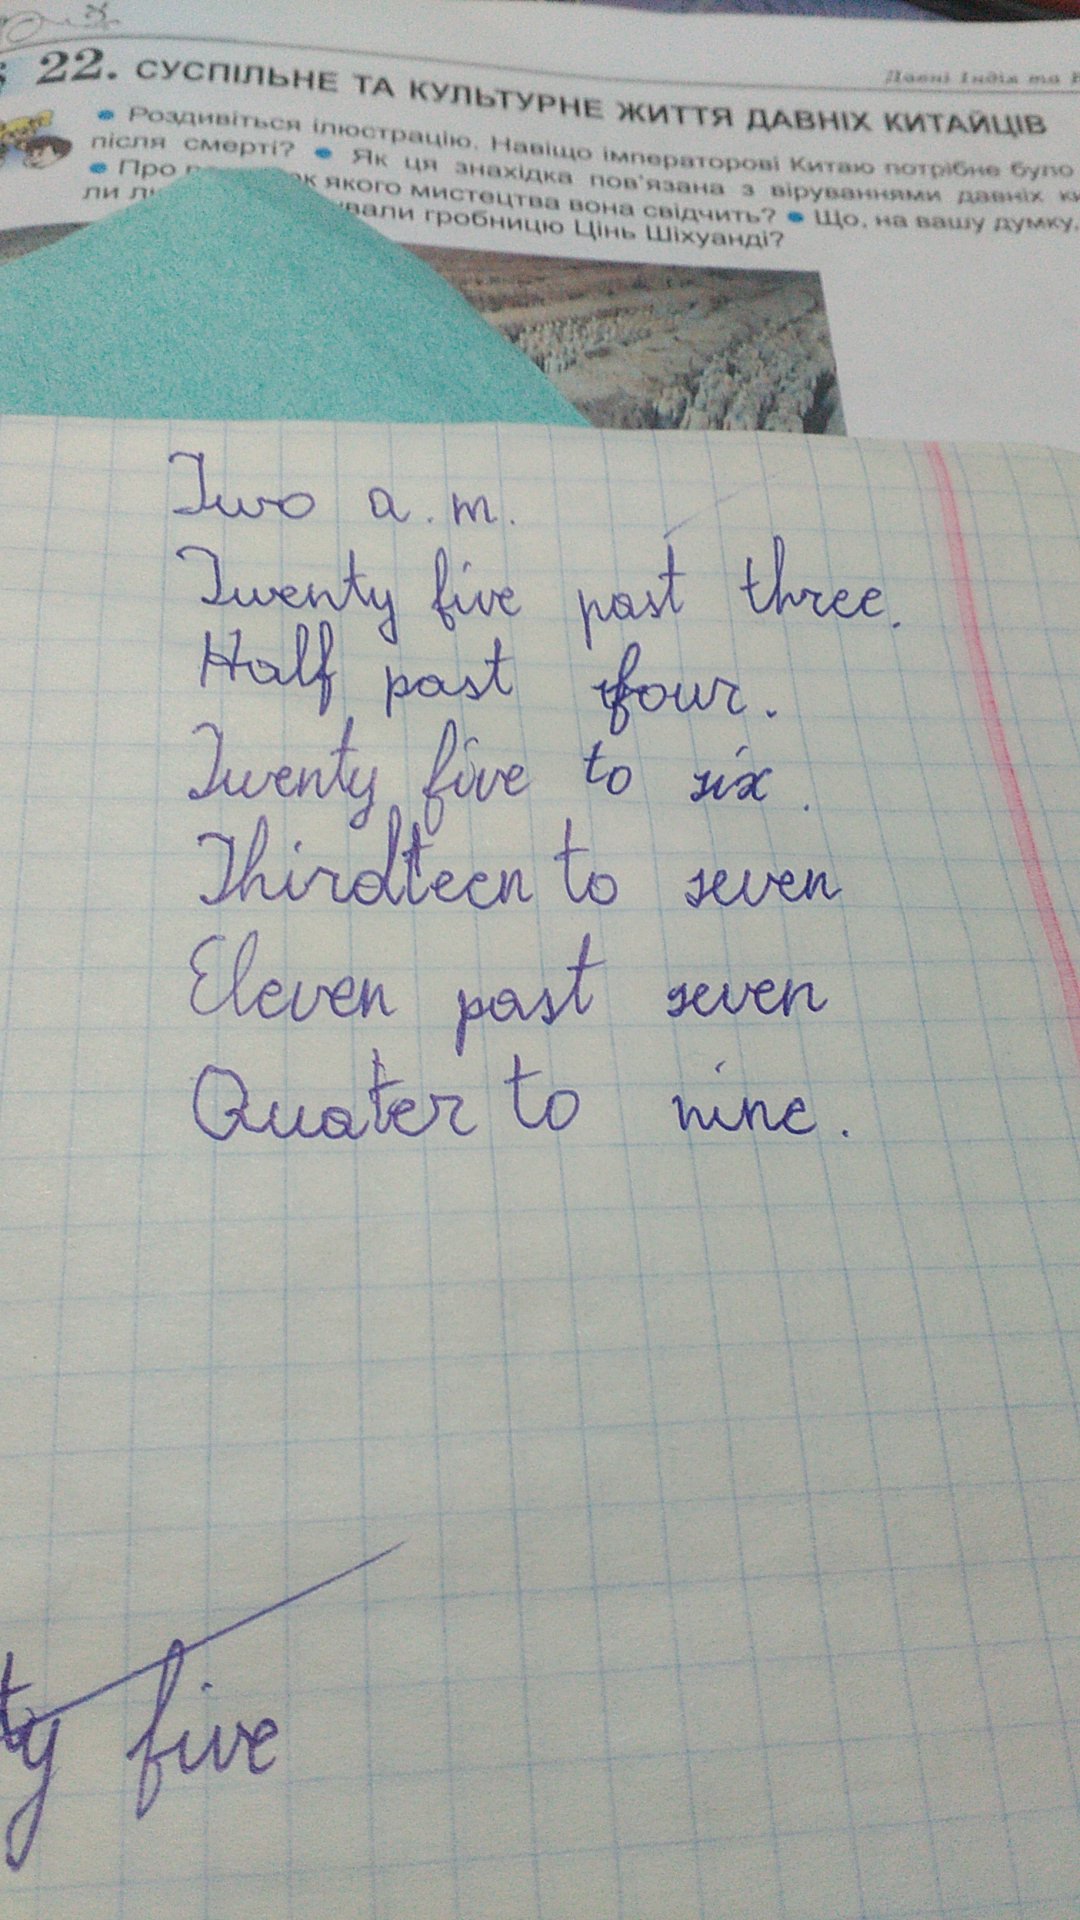 22. СУСПІЛЬНЕ ТА КУЛЬТУРНЕ ЖИТТЯ ДАВНІХ КИТАЙЦІВ
Давні Індія та
• Роздивіться ілюстрацію. Навіщо імператорові Китаю потрібне було
після смерті? • Як ця знахідка пов'язана з віруваннями давніх
• Про якого мистецтва вона свідчить? • Що, на вашу думку,
гробницю Цінь Шіхуанді?
Two a.m.
Twenty five past three.
Half past four.
Twenty five to six.
Thirdteen to seven
Eleven past seven
Quater to nine.
ty five